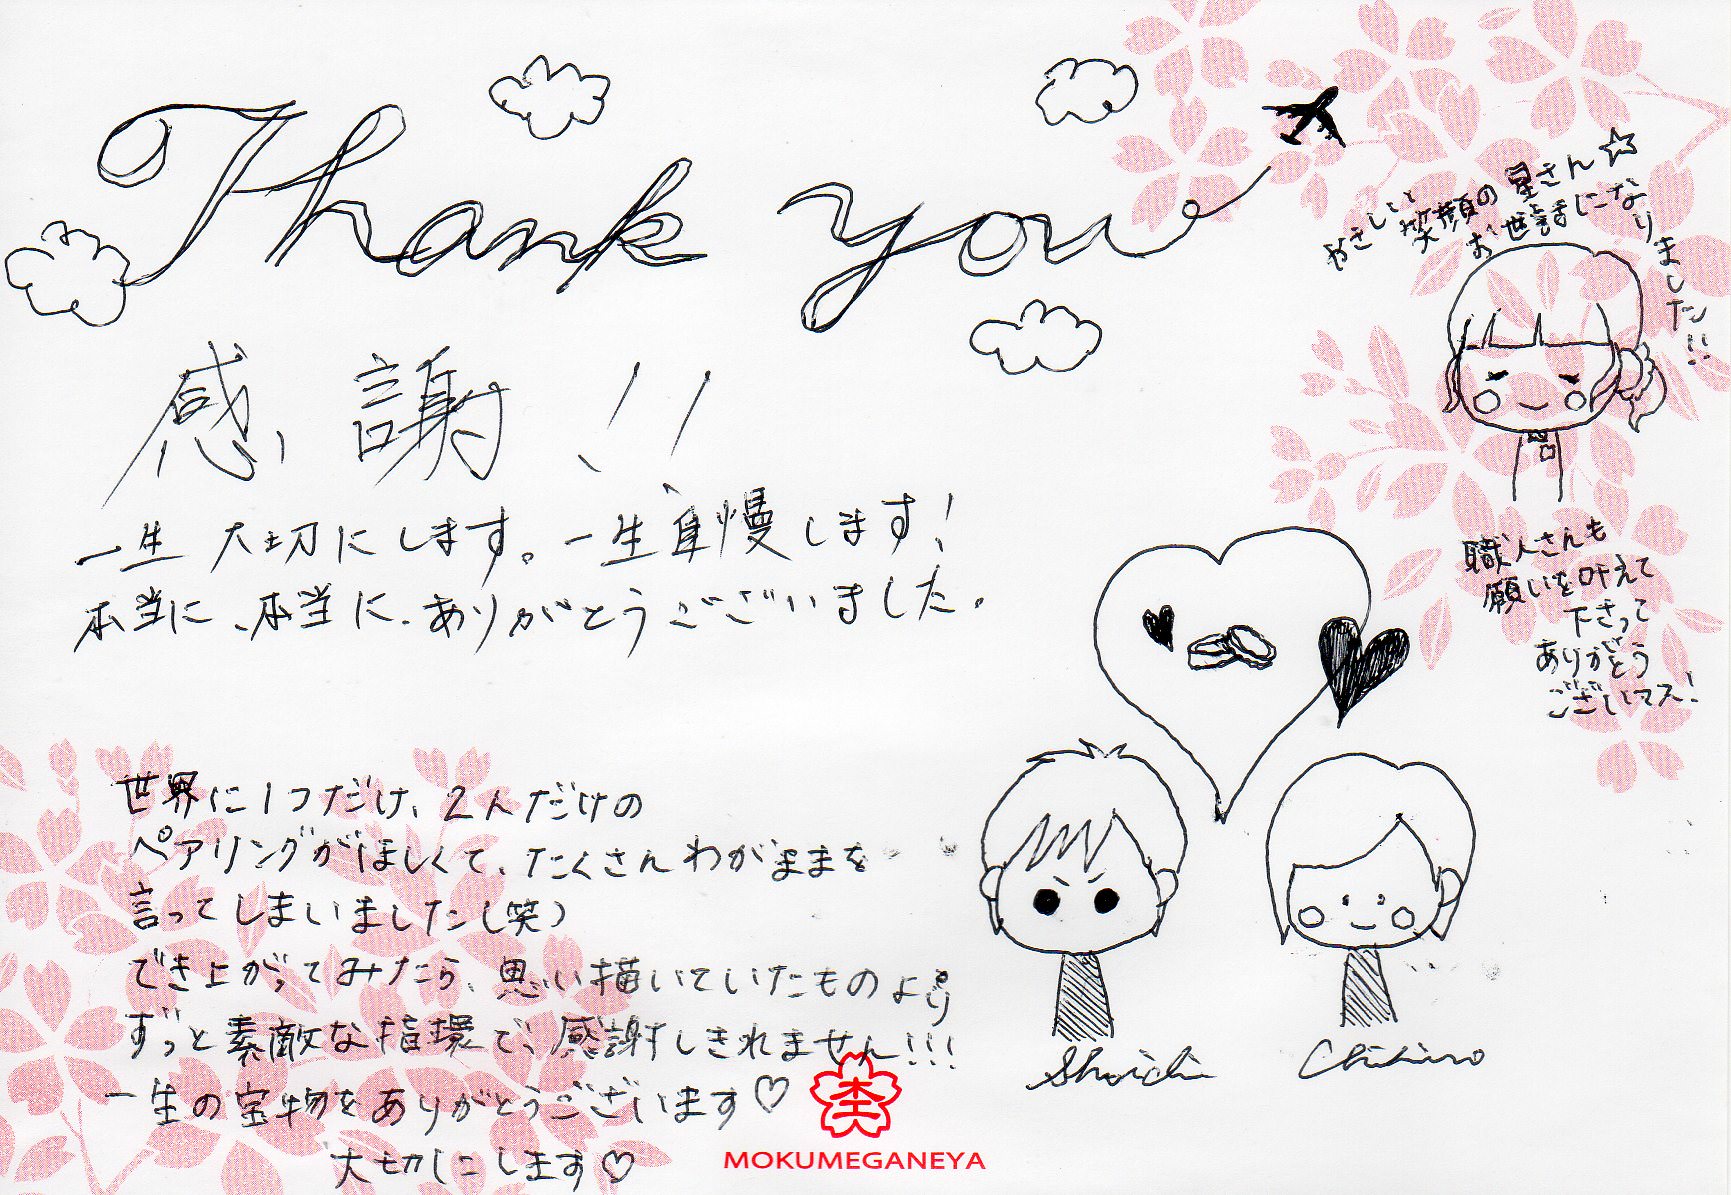 Thank you
やさしいと
笑顔の星さん☆
お世話になりました!!
感謝!!
一生大切にします。一生自慢します!
本当に、本当に、ありがとうございました。
職人さんも
願いを叶えて
下さって
ありがとう
ございマス!
世界に1つだけ、2人だけの
ペアリングがほしくて、たくさんわがままを
言ってしまいました(笑)
でき上がってみたら、思い描いていたものより
ずっと素敵な指環で、感謝しきれません!!!
一生の宝物をありがとうございます♡
大切にします♡
Shoichi
Chihiro
杢
MOKUMEGANEYA